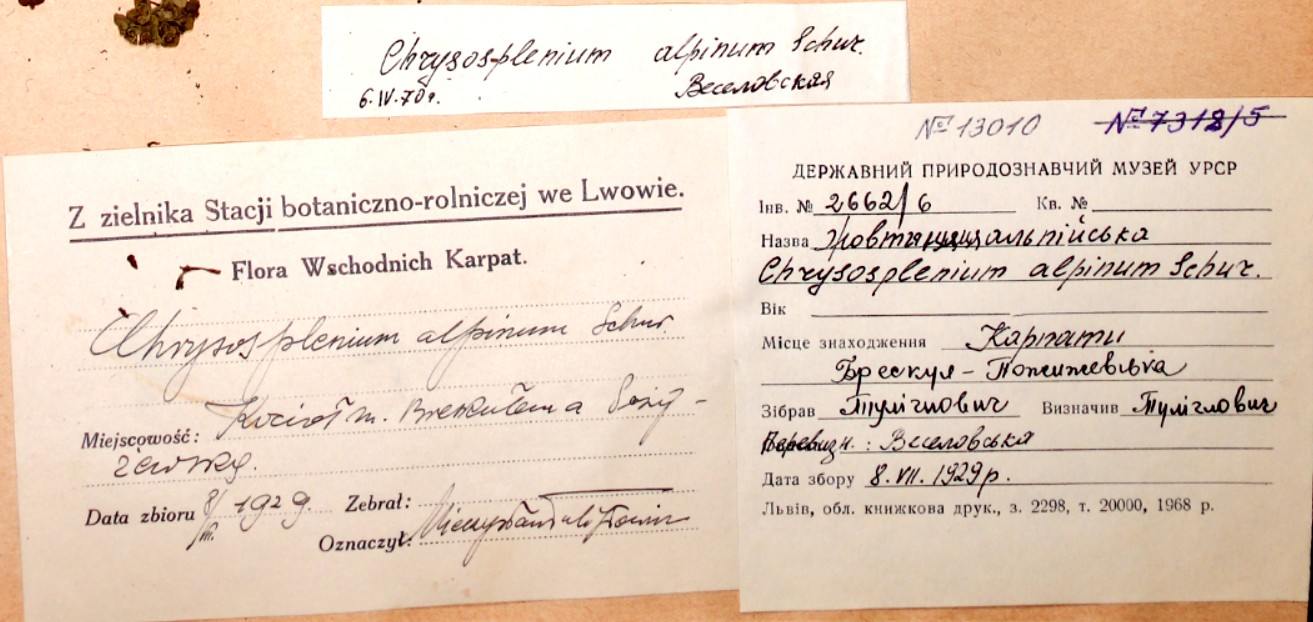 Chrysosplenium alpinum Schur.
6.IV.70г. Веселовская
Z zielnika Stacji botaniczno-rolniczej we Lwowie.
Flora Wschodnich Karpat.
Chrysosplenium alpinum Schur.
Miejscowość: Kocioł m. Breskułem a Poży-
żewską.
Data zbioru 8/VII. 1929. Zebrał:
Oznaczył:
№ 13010 № 7318/5
ДЕРЖАВНИЙ ПРИРОДОЗНАВЧИЙ МУЗЕЙ УРСР
Інв. № 2662/6 Кв. №
Назва альпійська
Chrysosplenium alpinum Schur.
Вік
Місце знаходження Карпати
Брескул - Пожижевська
Зібрав Туліглович Визначив Туліглович
Перевизн. : Веселовська
Дата збору 8.VII.1929р.
Львів, обл. книжкова друк., з. 2298, т. 20000, 1968 р.